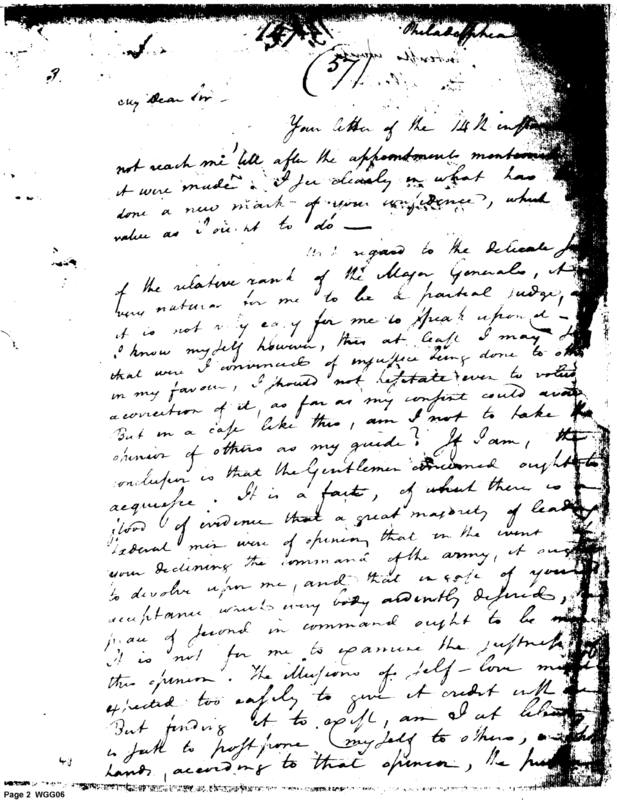 Philadelphia
(57)
3
My Dear Sir -
Your letter of the 14th
not reach me 'till after the appointments
it were made. I see clearly in what has
done a new mark of your confidence, which
value as I ought to do —
regard to the delicate
of the relative rank of the Major Generals, it
very natural for me to be a partial judge,
it is not very easy for me to speak upon it -
I know myself however, this at least I may
that were I convinced of injustice being done to
in my favour, I should not hesitate even to
a correction of it, as far as my consent could
But in a case like this, am I not to take the
opinion of others as my guide? If I am, the
conclusion is that the Gentlemen concerned ought to
acquiesce. It is a fact, of which there is a
flood of evidence that a great majority of leading
federal men were of opinion that in the event of
your declining the command of the army, it ought
to devolve upon me, and that in case of your
acceptance which every body ardently desired, the
place of second in command ought to be mine
It is not for me to examine the justness of
this opinion. The illusions of self-love might be
expected too easily to give it credit with me
But finding it to exist, am I at liberty
to postpone myself to others, in whose
hands, according to that opinion, the public
Page 2 WGG06